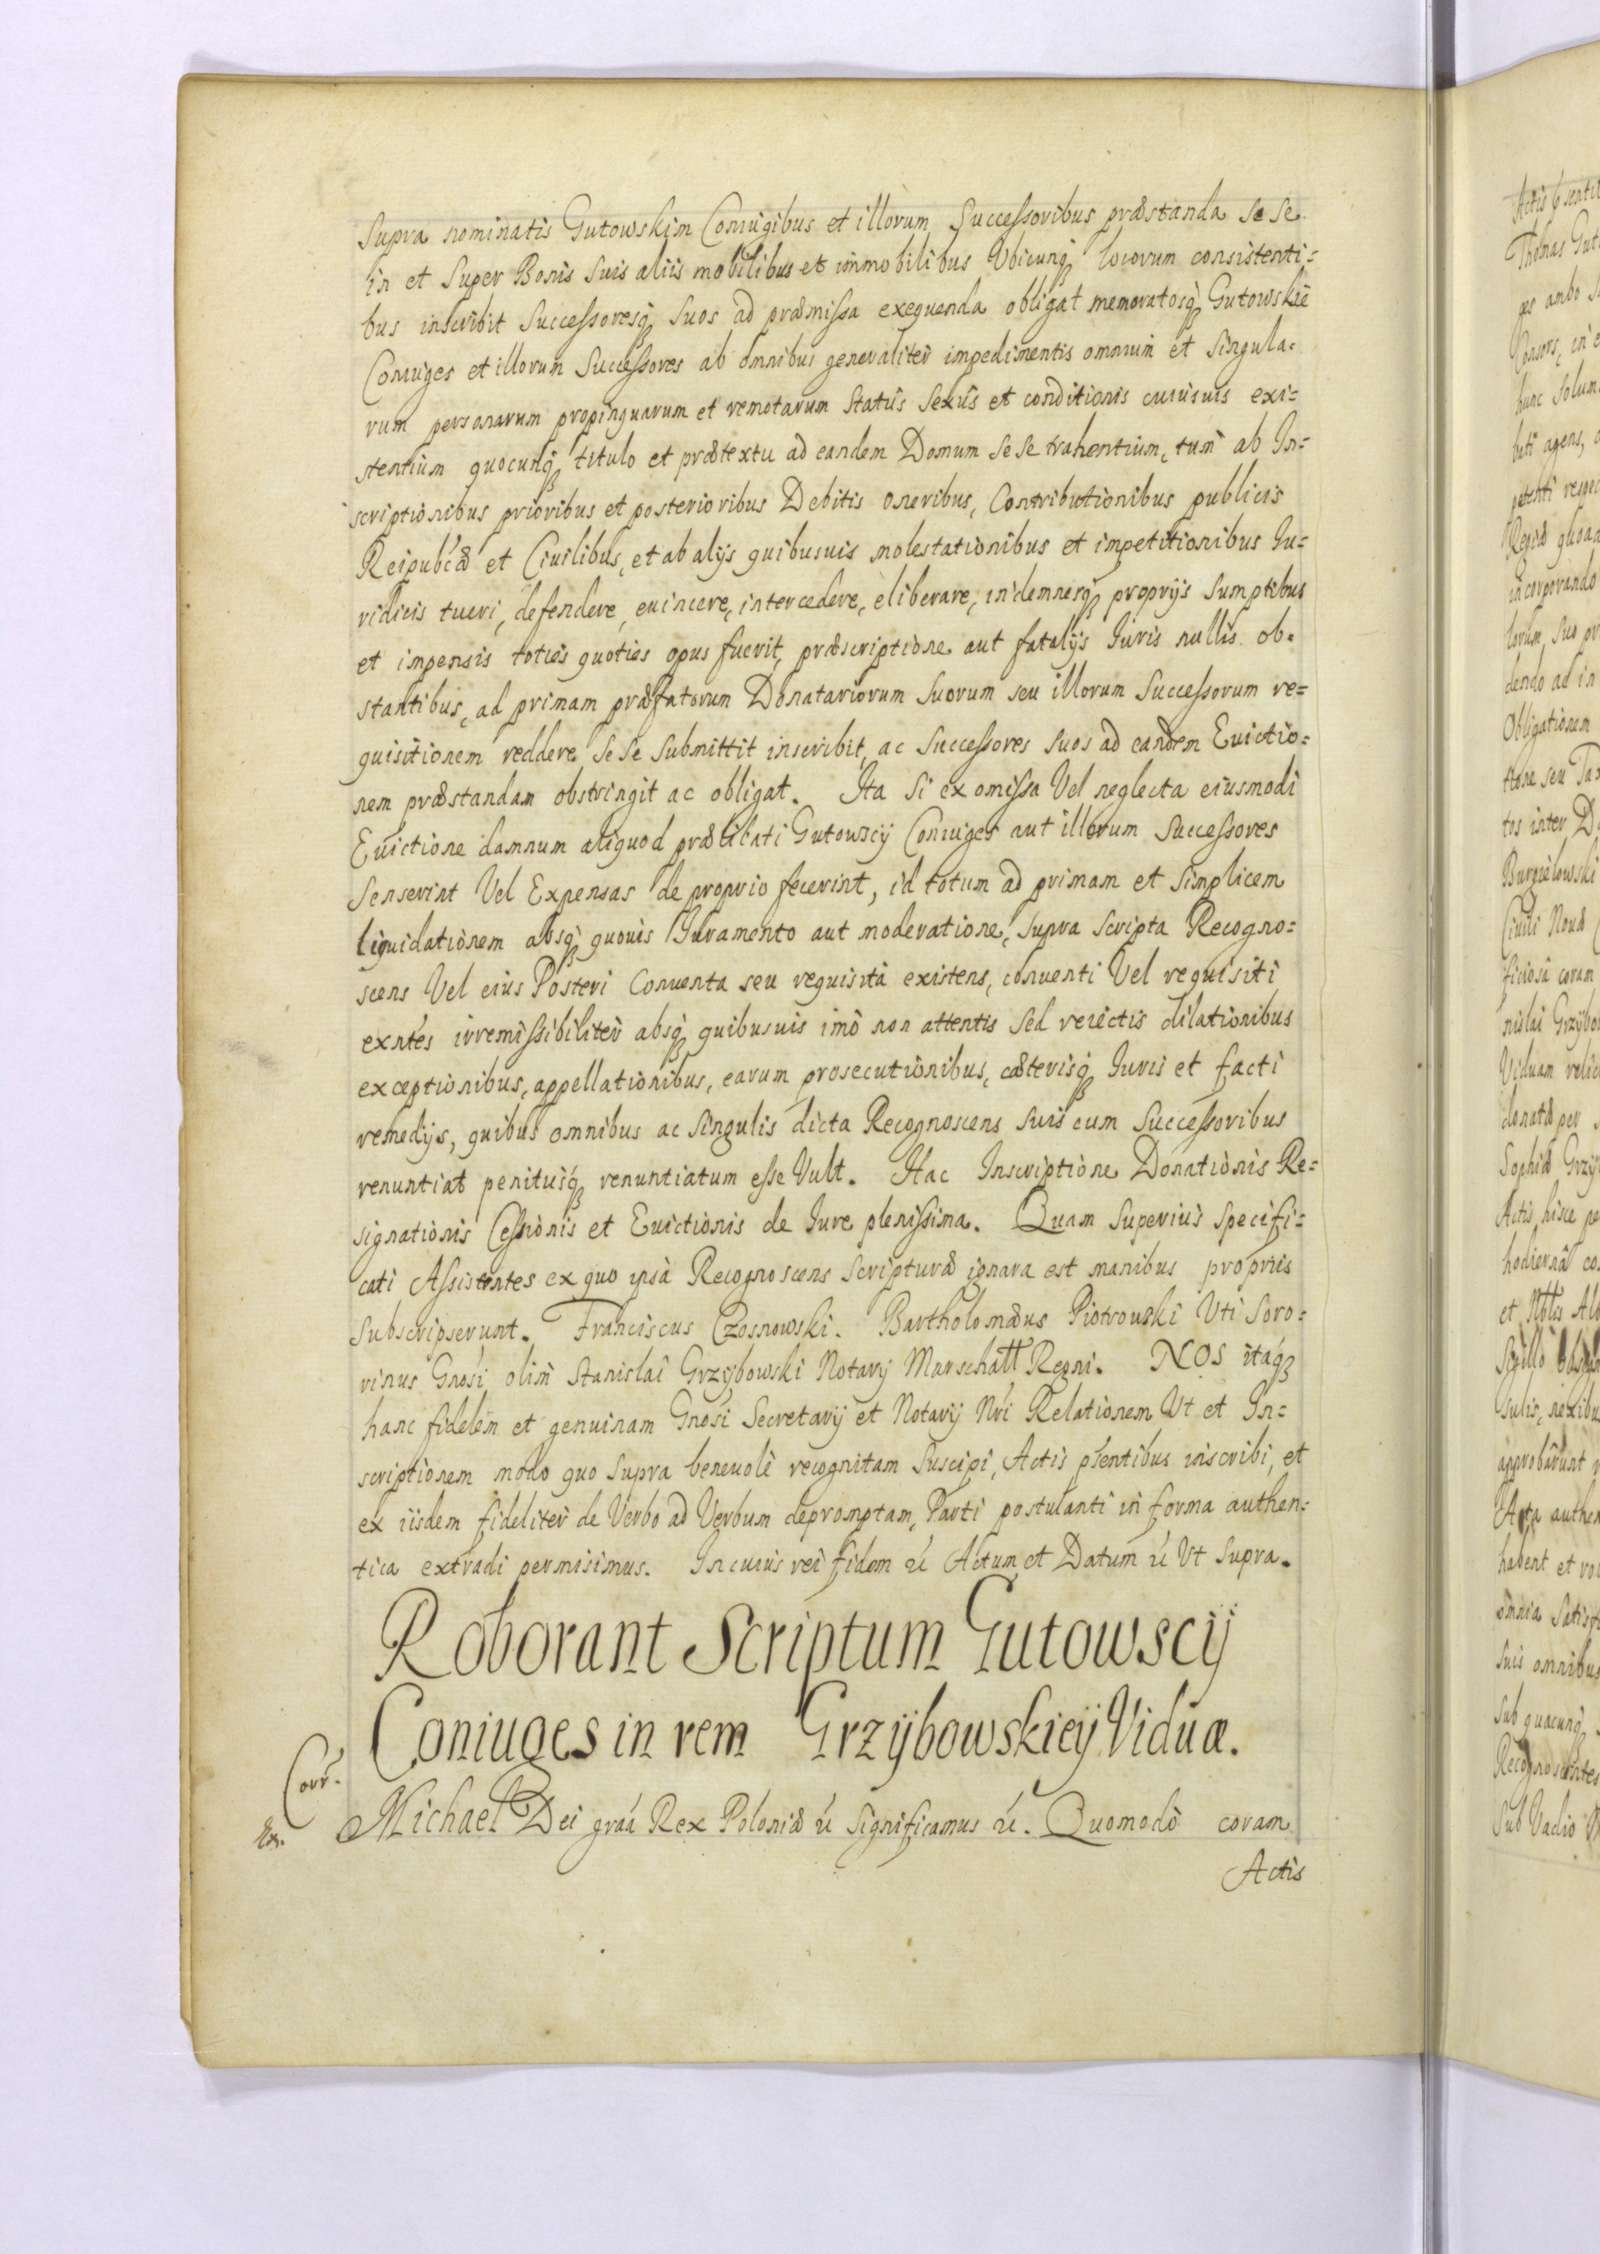 Supra nominatis Gutowskim Coniugibus et illorum Successoribus præstanda se se
in et super Bonis suis aliis mobilibus et immobilibus Ubicunq; locorum consistenti=
bus inscribit Successoresq; suos ad præmissa exequenda obligat memoratosq; Gutowskie
Coniuges et illorum Successores ab omnibus generaliter impedimentis omnium et singula=
rum personarum propinquarum et remotarum statûs sexûs et conditionis cuiusuis exi=
stentium quocunq; titulo et prætextu ad eandem Domum se se trahentium, tum ab In=
scriptionibus prioribus et posterioribus Debitis oneribus, Contributionibus publicis
Reipubcæ et Ciuilibus, et ab alijs quibusuis molestationibus et impetitionibus Iu=
ridicis tueri, defendere, euincere, intercedere, eliberare, indemnesq; proprijs sumptibus
et impensis toties quoties opus fuerit, præscriptione aut fatalijs Iuris nullis ob=
stantibus, ad primam præfatorum Donatariorum suorum seu illorum Successorum re=
quisitionem reddere se se submittit inscribit, ac Successores suos ad eandem Euictio=
nem præstandam obstringit ac obligat. Ita si ex omissa Vel neglecta eiusmodi
Euictione damnum aliquod prælibati Gutowscij Coniuges aut illorum Successores
senserint Vel Expensas de proprio fecerint, id totum ad primam et simplicem
liquidationem absq; quouis Iuramento aut moderatione, supra scripta Recogno=
scens Vel eius Posteri Conuenta seu requisita existens, conuenti Vel requisiti
exntes irremissibiliter absq; quibusuis imò non attentis sed reiectis dilationibus
exceptionibus, appellationibus, earum prosecutionibus, cæterisq; Iuris et facti
remedijs, quibus omnibus ac singulis dicta Recognoscens suis cum Successoribus
renuntiat penitusq; renuntiatum esse Vult. Hac Inscriptione Donationis Re=
signationis Cessionis et Euictionis de Iure plenissima. Quam superius specifi=
cati Assistentes ex quo ipsa Recognoscens scripturæ ignara est manibus propriis
subscripserunt. Franciscus Czosnowski. Bartholomæus Piotrowski Uti soro=
rinus Gnosi olim Stanislai Grzybowski Notarij Marschatt Regni. NOS itaq;
hanc fidelem et genuinam Gnosi Secretarij et Notarij Nri Relationem Ut et In=
scriptionem modo quo supra beneuolè recognitam suscipi, Actis pntibus inscribi, et
ex iisdem fideliter de Verbo ad Verbum depromptam, Parti postulanti in forma authen=
tica extradi permisimus. In cuius rei fidem &c Actum et Datum &c Ut supra.
Roborant Scriptum Gutowscij
Coniuges in rem Grzybowskieij Viduæ.
Corr.
Ex.
Michael Dei graâ Rex Poloniæ &c significamus &c. Quomodò coram
Actis